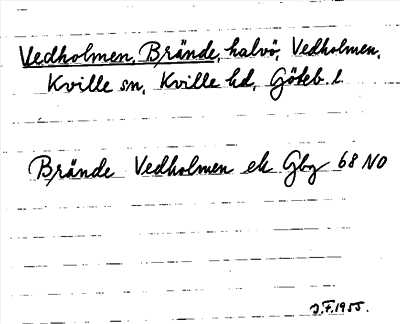 Vedholmen, Brände, halvö, Vedholmen,
Kville sn, Kville hd, Göteb. l.
Brände Vedholmen ek Gbg 68 NO
J.F.1955.